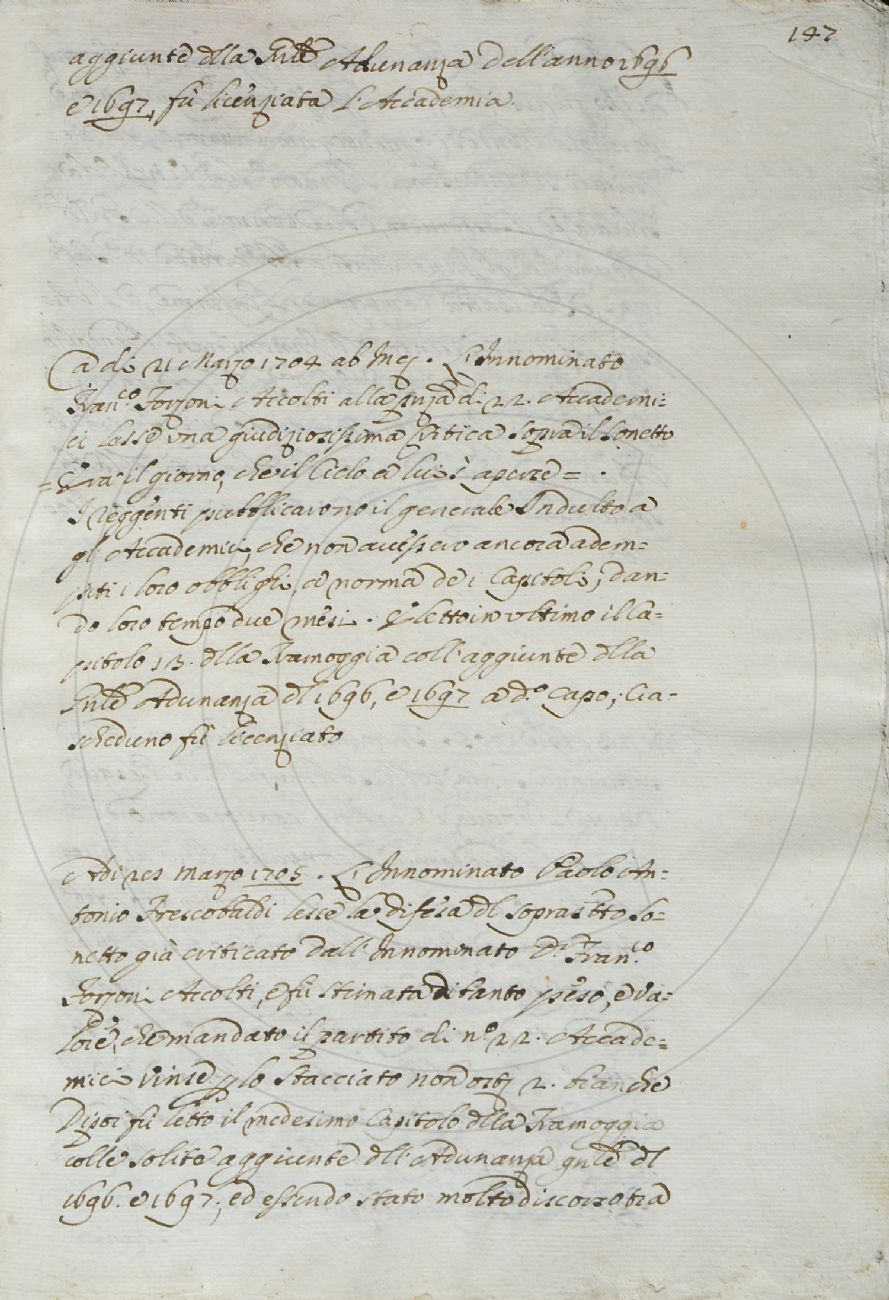 147
aggiunte dlla Gnle Adunanza dell'anno 1696
e 1697, fù licenziata l'Accademia.
A dì 21 Marzo 1704 ab Inc. L'Innominato
Fran.co Forzoni Accolti alla pnza di 22. Accademi=
ci lesse una giudiziosissima Critica sopra il sonetto
=Era il giorno, che il Cielo a lui s'aperse= .
I reggenti pubblicarono il generale Indulto a
gl'Accademici, che non avessero ancora adem=
piti i loro obblighi a norma de i Capitoli, dan=
do loro tempo due mesi. E letto in ultimo il Ca=
pitolo 13. dlla Tramoggia coll'aggiunte dlla
Gnle Adunanza dl 1696, e 1697 a d.o Capo, Cia=
scheduno fù licenziato
Adì 21 Marzo 1705. L'Innominato Paolo An=
tonio Frescobaldi lesse la difesa dl soprad.tto So=
netto già criticato dall'Innominato D.r Fran.co
Forzoni Accolti, e fù stimata di tanto peso, e va=
lore, che mandato il partito di n.o 22. Accade=
mici vinse p lo stacciato non ostj 2. bianche
Dipoi fù letto il medesimo Capitolo dlla Tramoggia
colle solite aggiunte dll'Adunanza gnle dl
1696. e 1697, ed essendo stato molto discorso tra